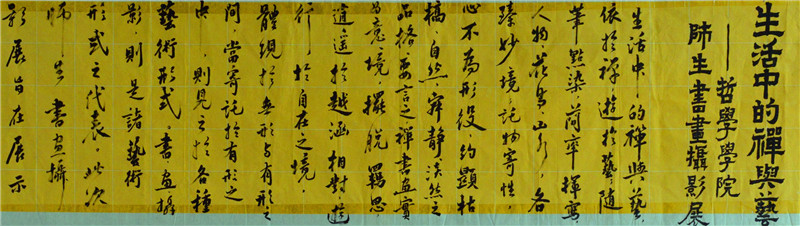 生活中的禪與藝
——哲學學院
師生書畫攝影展
生活中的禪與藝，
依於禪，遊於藝，隨
筆點染，簡率揮寫，
人物、花鳥、山水，各
臻妙境，託物寄性，
心不為形役，約顯枯
槁，自然寂靜，淡然之
品格。要言之，禪書畫實
為意境，擺脫羈思，
逍遙於越涵相對，遊
行於自在之境，
體現於無形與有形之
間，當寄託於有形之
中，則見之於各種
藝術形式。書畫攝
影，則是諸藝術
形式之代表。此次
師生書畫攝
影展旨在展示